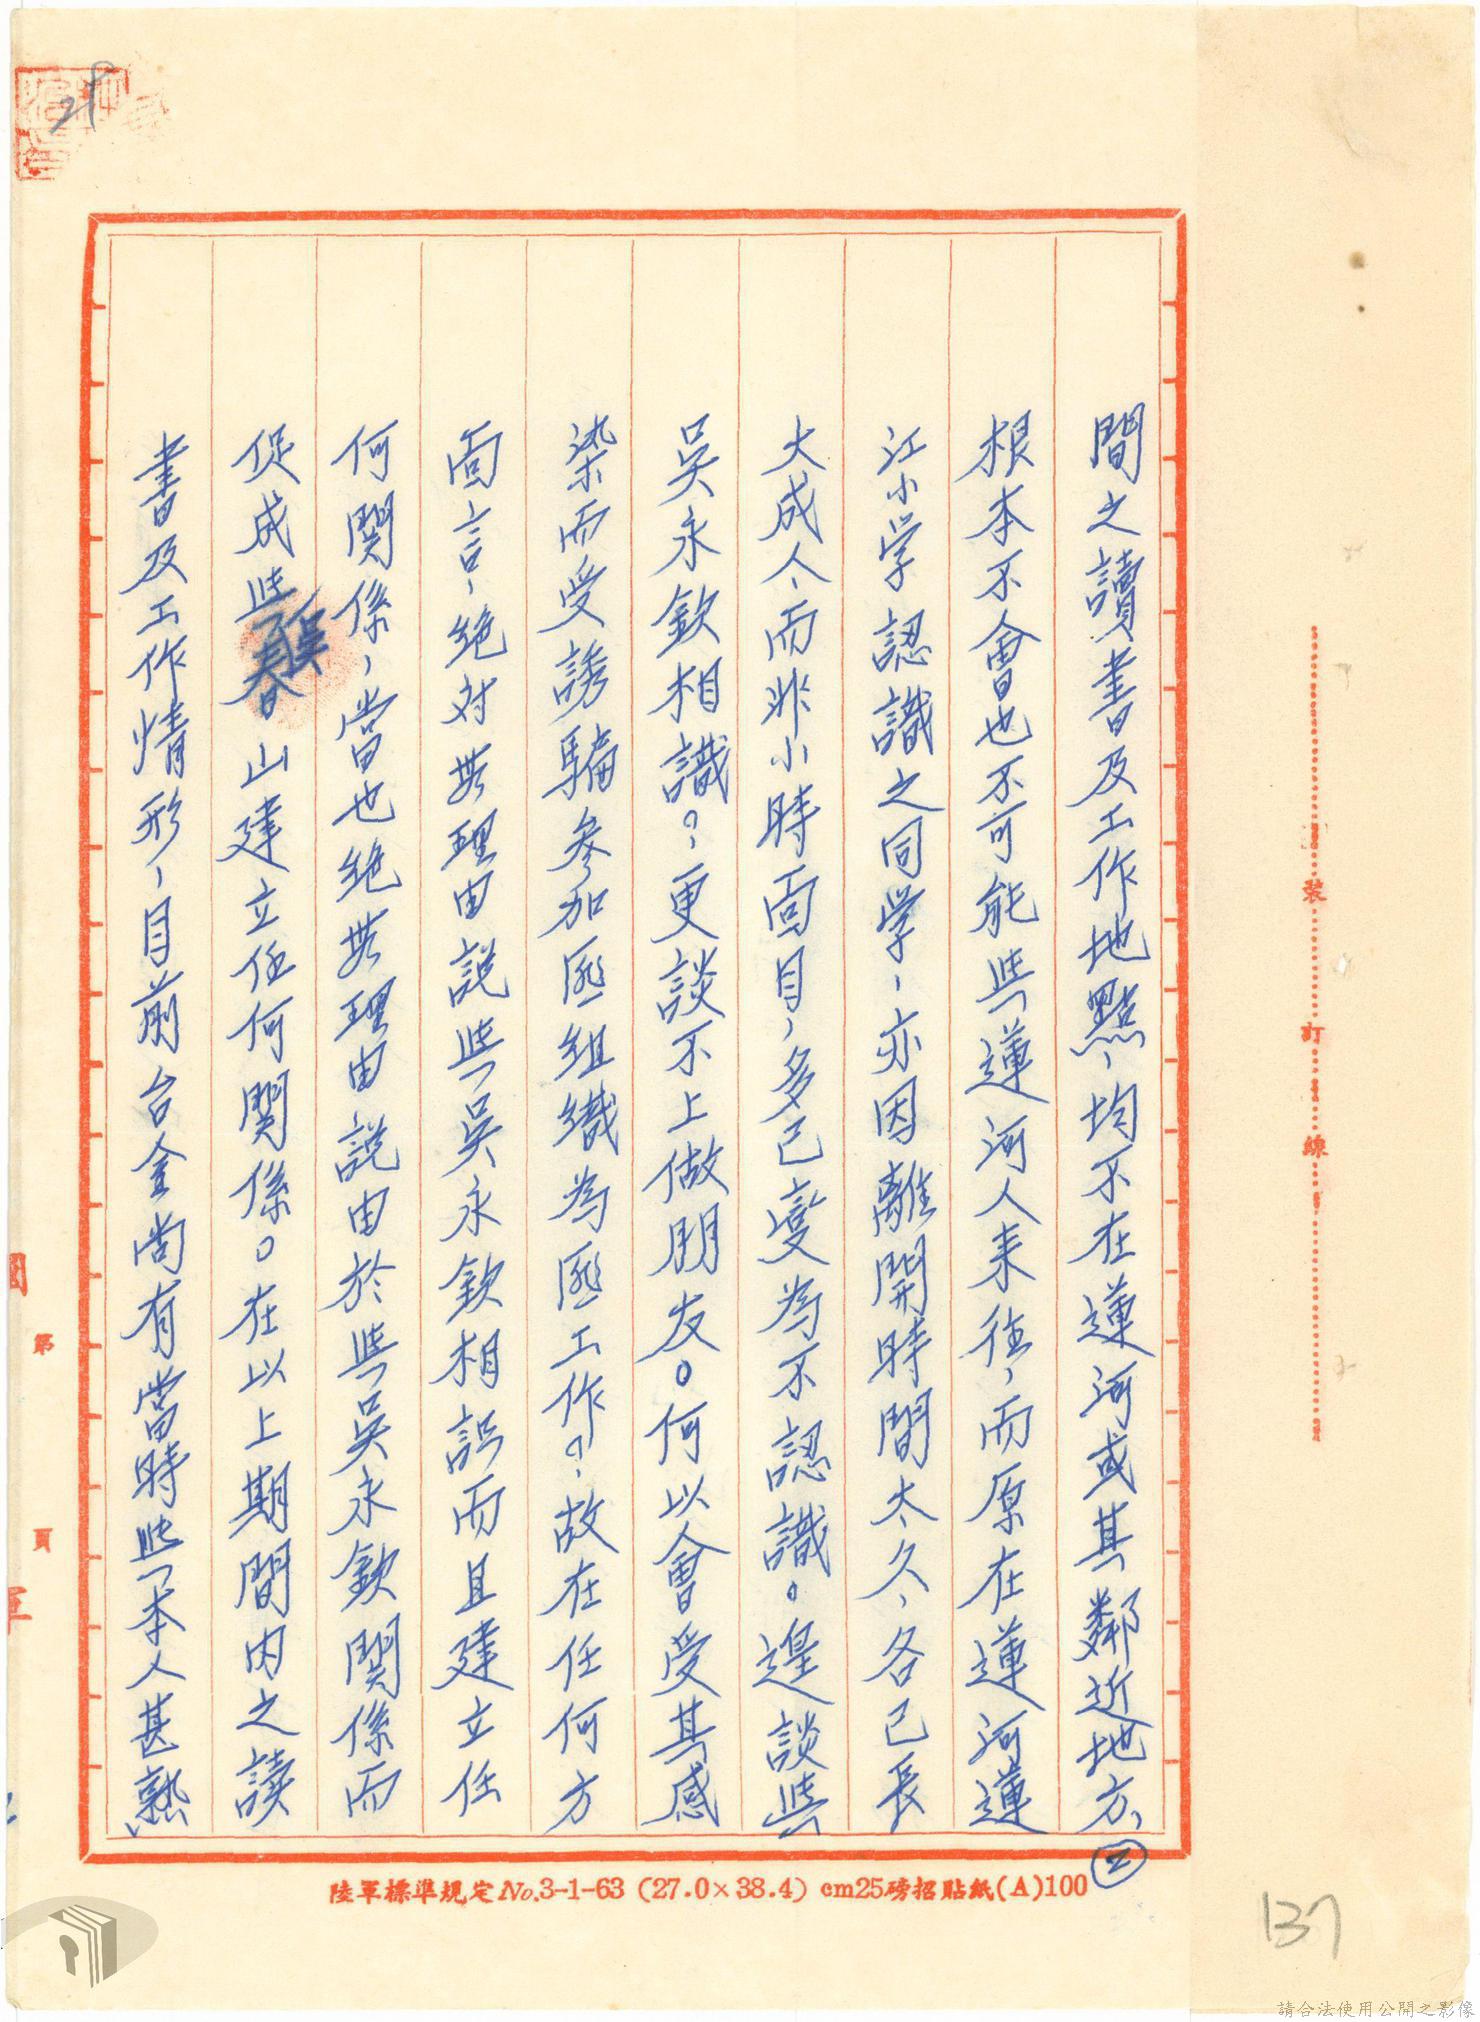 間之讀書及工作地點、均不在蓮河或其鄰近地方、
根本不會也不可能與蓮河人來往，而原在蓮河蓮
江小学認識之同学，亦因離開時間太久、各已長
大成人、而非小時面目，多已變為不認識。遑談與
吳永欽相識？更談不上做朋友。何以會受其感
染而受誘騙參加匪組織為匪工作？故在任何方
面言，絕对無理由說與吳永欽相認而且建立任
何関係，當也絕無理由說由於與吳永欽関係而
促成與吳春山建立任何関係。在以上期間內之讀
書及工作情形，目前台金尚有當時與本人甚熟
②
裝 訂 線
第 頁
陸軍標準規定No.3-1-63 (27.0×38.4) cm25磅招貼紙(A)100
137
請合法使用公開之影像